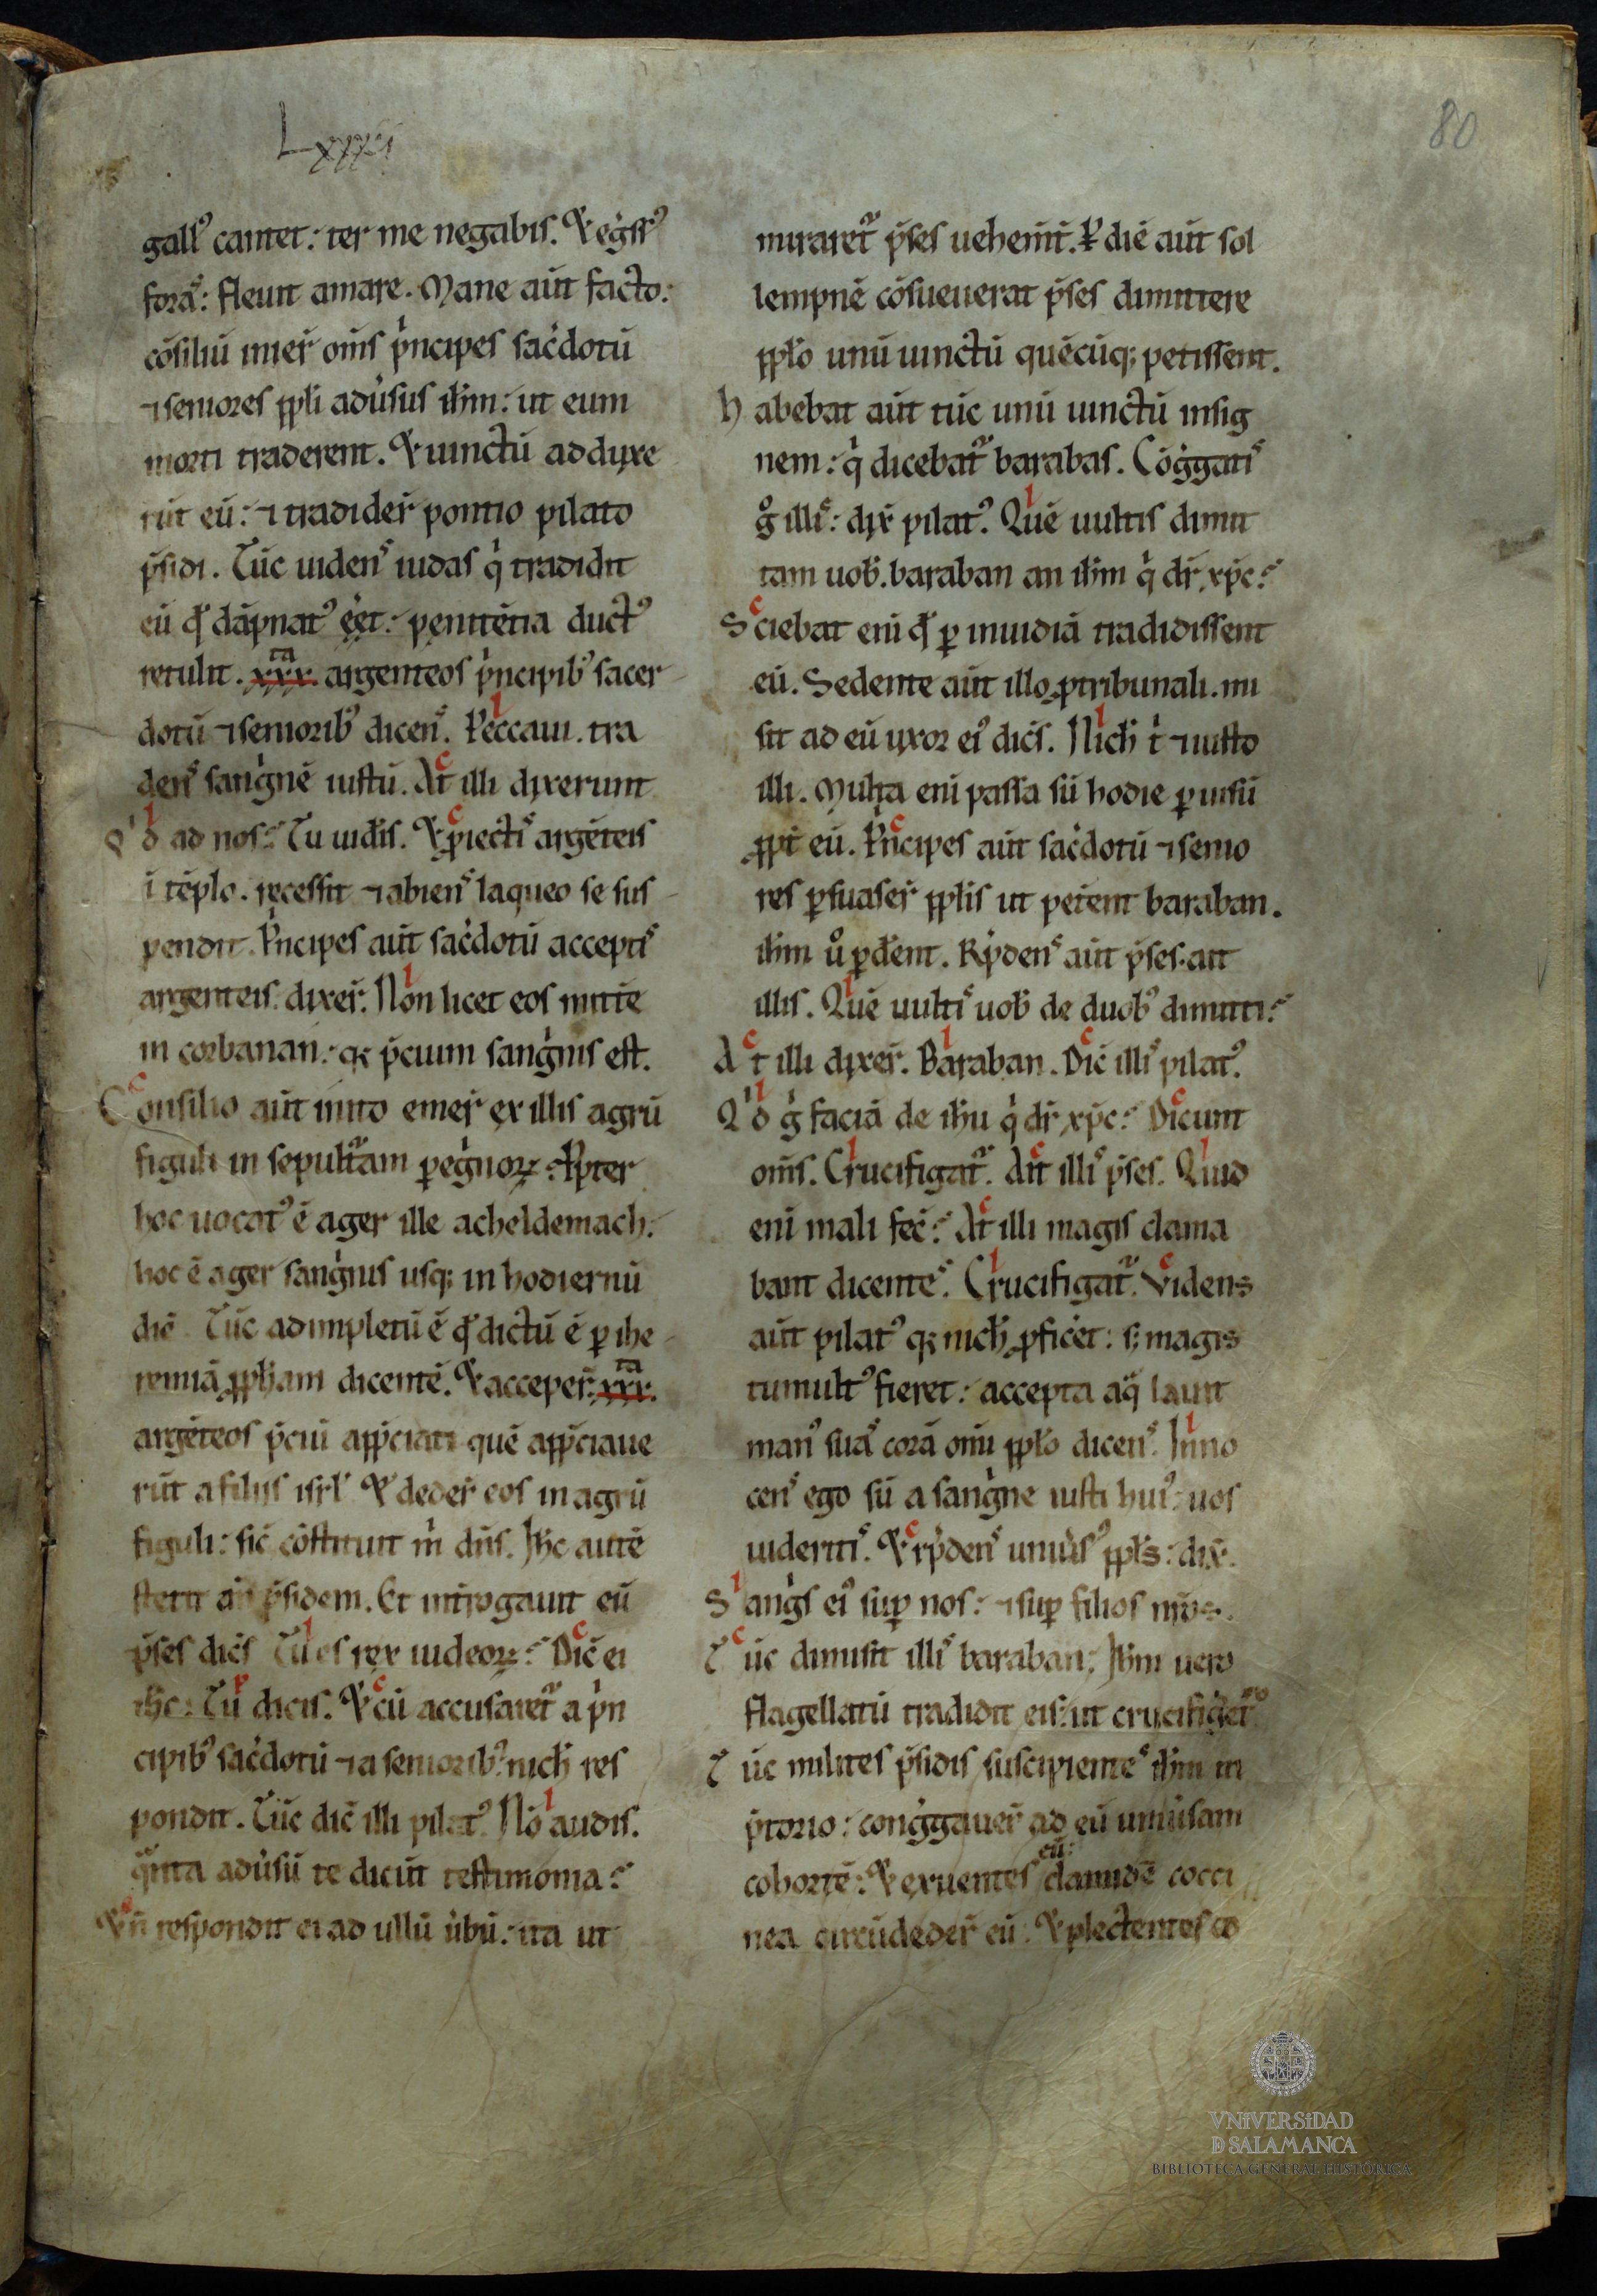 Lxxxi
80
gallꝰ cantet: ter me negabis. Et eg̾ssꝰ
foras: fleuit amare. Mane aut̄ facto:
cōsiliū inier̄ om̄s p̾ncipes sac̾dotū
⁊ seniores pp̄li adu̾sus ih̄m: ut eum
morti traderent. Et uinctū adduxe
rūt eū: ⁊ tradider̄ pontio pilato
p̄sidi. Tūc uidens iudas q̾ tradidit
eū qđ dāpnatꝰ eēt: penitētia ductꝰ
retulit. xxx.ta argenteos p̾ncipibꝰ sacer
dotū ⁊ senioribꝰ dicens. Peccaui. tra
dens sang̾nē iustū. At illi dixerunt
Q'd ad nos? Tu uid̾is. Et ꝓiectis argēteis
ī tēplo. recessit ⁊ abiens laqueo se sus
pendit. P̾ncipes aut̄ sac̾dotū acceptis
argenteis. dixer̄. Non licet eos mitt̄e
in corbanan: qꝫ p̄cium sang̾nis est.
Consilio aut̄ inito emer̄ ex illis agrū
figuli in sepult̾am peg̾norꝝ. Ꝓpter
hoc uocatꝰ ē ager ille acheldemach.
hoc ē ager sang̾nis usqꝫ in hodiernū
diē. Tūc adimpletū ē qđ dictū ē ꝑ ihe
remiā ꝓph̄am dicentē. Et acceper̄. xxx.ta
argēteos p̄ciū app̄ciati quē app̄ciaue
rūt a filiis isrl̄. Et deder̄ eos in agrū
figuli: sic̄ cōstituit m̾ dn̄s. Ih̄c autē
stetit an̄ p̄sidem. Et int̾rogauit eū
p̄ses dic̄s Tu es rex iudeorꝝ? Dic̄ ei
ih̄c. Tu dicis. Et cū accusaret̾ a p̾n
cipibꝰ sac̾dotū ⁊ a senioribꝰ: nich̄ res
pondit. Tūc dic̄ illi pilatꝰ. Nō audis.
q̾nta adu̾sū te dicūt testimonia?
Et n̄ respondit ei ad ullū u̾bū: ita ut
miraret̾ p̄ses uehem̄t̄. P̱ diē aut̄ sol
lempnē cōsueuerat p̄ses dimittere
pp̄lo unū uinctū quēcūqꝫ petissent.
habebat aut̄ tūc unū uinctū insig
nem: q̾ dicebat̾ barabas. Cōg̾gatis
g̊ illis: dix̄ pilatꝰ. Quē uultis dimit
tam uob̄. baraban an ih̄m q̾ dr̄ xp̄c?
Sciebat eni qđ ꝑ inuidiā tradidissent
eū. Sedente aut̄ illo ꝓ tribunali. mi
sit ad eū uxor eiꝰ dic̄s. Nich̄ t̾ ⁊ iusto
illi. Multa eni passa sū hodie ꝑ uisū
ꝓpt̄ eū. P̾ncipes aut̄ sac̾dotū ⁊ senio
res ꝑsuaser̄ pp̄lis ut pet̄ent baraban.
ih̄m ů ꝑd̄ent. Rp̄dens aut̄ p̄ses. ait
illis. Quē uultis uob̄ de duobꝰ dimitti?
At illi dixer̄. Baraban. Dic̄ illis pilatꝰ.
Q'd g̊ faciā de ih̄u q̾ dr̄ xp̄c? Dicunt
om̄s. Crucifigat̾. Ait illis p̄ses. Quid
eni mali fec̄? At illi magis clama
bant dicentes. Crucifigat̾. Videns
aut̄ pilatꝰ qꝫ nich̄ ꝓfic̄et: sꝫ magis
tumultꝰ fieret: accepta aq̾ lauit
manꝰ suas corā om̄i pp̄lo dicens. Inno
cens ego sū a sang̾ne iusti huiꝰ: uos
uideritis. Et rp̄dens uniu̾sꝰ pp̄ls: dix̄.
Sang̾s eiꝰ suꝑ nos: ⁊ suꝑ filios nr̄os.
Tūc dimisit illis baraban: Ih̄m uero
flagellatū tradidit eis: ut crucifiget̾
Tūc milites p̄sidis suscipientes ih̄m in
p̄torio: cong̾gauer̄ ad eū uniu̾sam
cohortē: Et exuentes eū: clamidē cocci
nea circūdeder̄ eū: Et plectentes co
VNiVERSiDAD
D SALAMANCA
BIBLIOTECA GENERAL HISTÓRICA